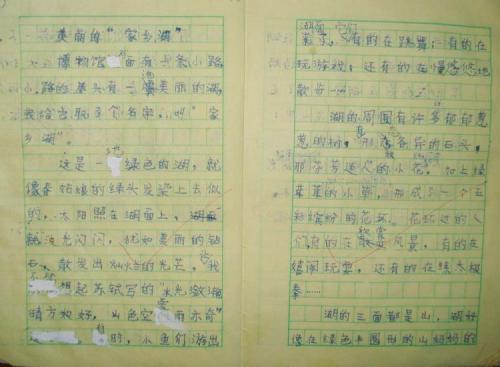 美丽的“家乡湖”
博物馆 面有一条小路,
小路的尽头有一 美丽的湖,
我给它取了个名字,叫“家
乡湖”。
这是一 绿色的湖,就
像春姑娘的绿头发染上去似
的,太阳照在湖面上,
波光闪闪,犹如美丽的钻
石,散发出 的光芒,我
想起苏轼写的“水光潋滟
晴方好,山色空 雨亦奇”
的,小鱼们游出
湖面,它们
有的在跳舞;有的在
玩游戏;还有的在慢悠悠地
散步
湖的周围有许多郁郁葱
葱的树,形 各异的石头,
那芬芳迷人的小花,加上绿
草 的小 形成 一个五
彩缤纷的花环。花环边的人
们有的在欣赏风景,有的在
嬉闹玩耍,还有的在练太极
拳……
湖的三面都是山,湖好
像在绿色 圆形的山 的